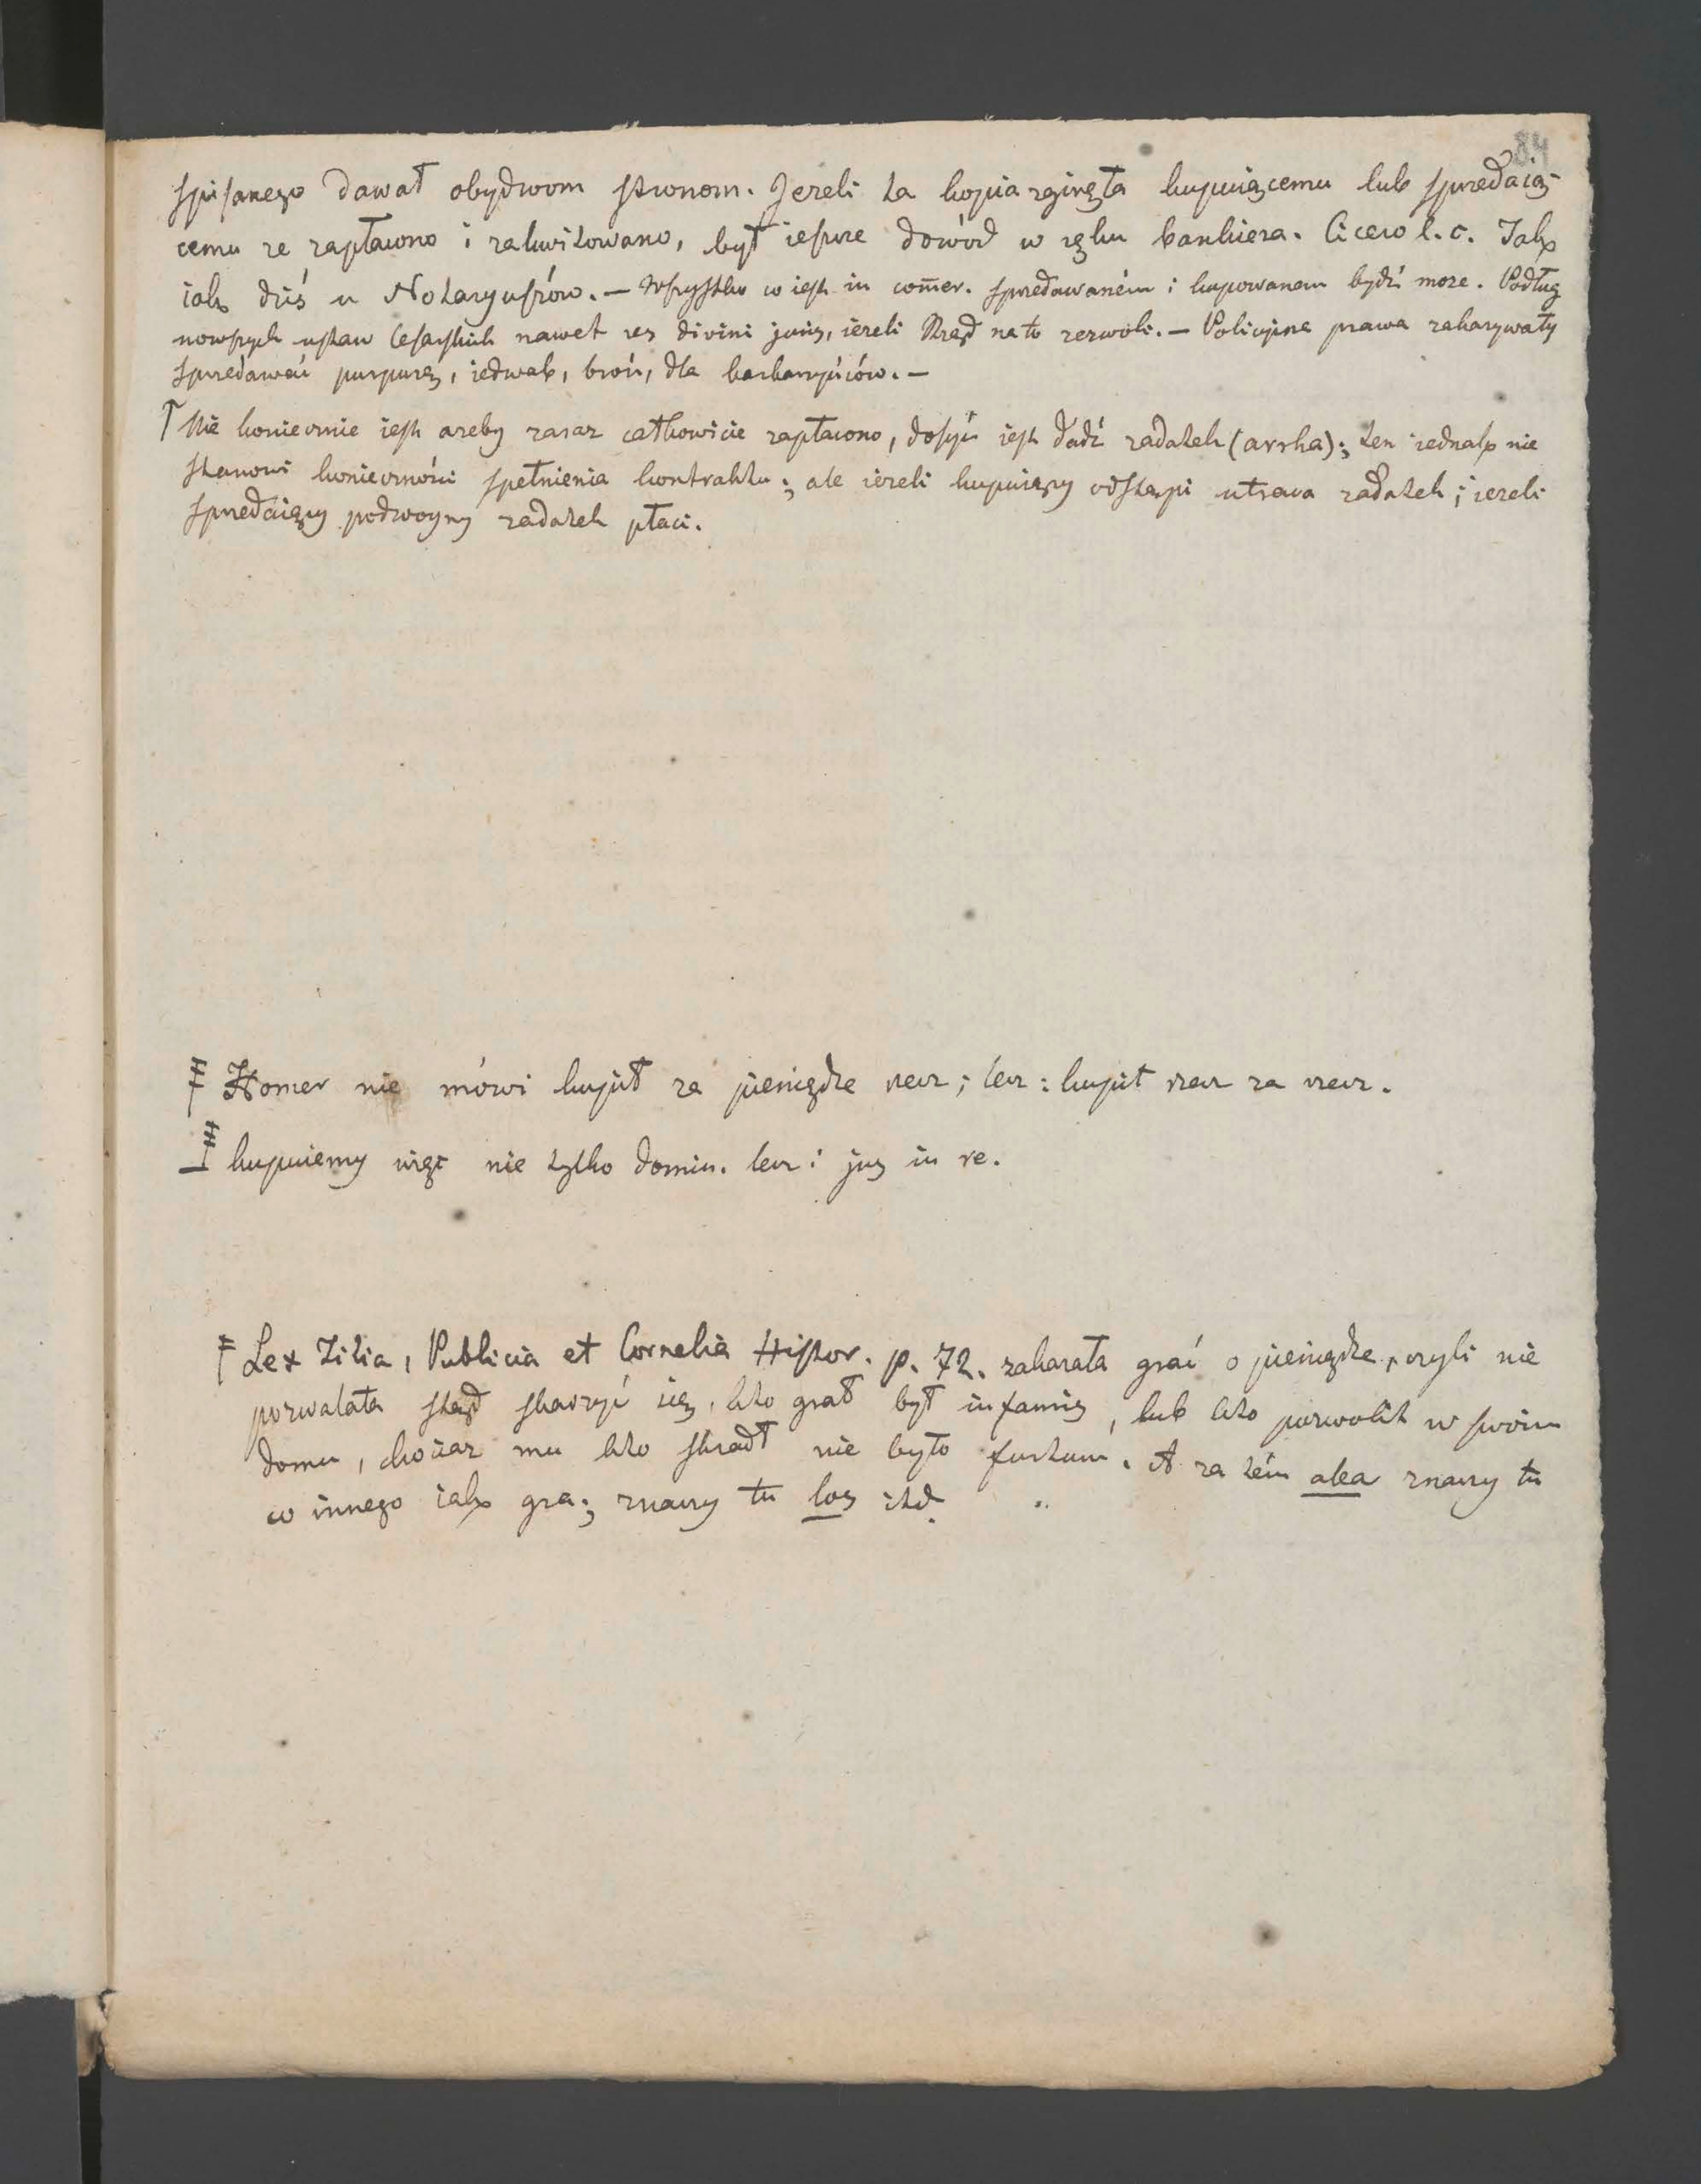 84
spisanego dawał obydwom stronom. Jezeli ta kopia zginęła kupuiącemu lub sprzedaią-
cemu ze zapłacono i zakwitowano, był ieszcze dowód w ręku bankiera. Cicero l. c. Jak
iak dziś u Notaryuszów. — Wszystko co iest in com̄er. sprzedawaném i kupowanem bydź może. Podług
nowszych ustaw Cesarskich nawet res divini juris, iezeli Rząd na to zezwoli. — Policyjne prawa zakazywały
sprzedawać purpurę, iedwab, broń, dla barbarzyńców. —
† Nie koniecznie iest azeby zaraz całkowicie zapłacono, dosyć iest dadź zadatek (arrha); ten iednak nie
stanowi konieczności spełnienia kontraktu; ale iezeli kupuiący odstąpi utraca zadatek; iezeli
sprzedaiący podwoyny zadatek płaci.
‡ Homer nie mówi kupił za pieniądze rzecz; lecz: kupił rzecz za rzecz.
kupuiemy więc nie tylko domin. lecz i jus in re.
‡ Lex Titia, Publicia et Cornelia Histor. p. 72. zakazała grać o pieniądze, czyli nie
pozwalała stąd skarzyć się, kto grał był infamis, lub kto pozwolił w swoim
domu, chociaz mu kto skradł nie było furtum. A za tém alea znaczy tu
co innego iak gra; znaczy tu los itd.